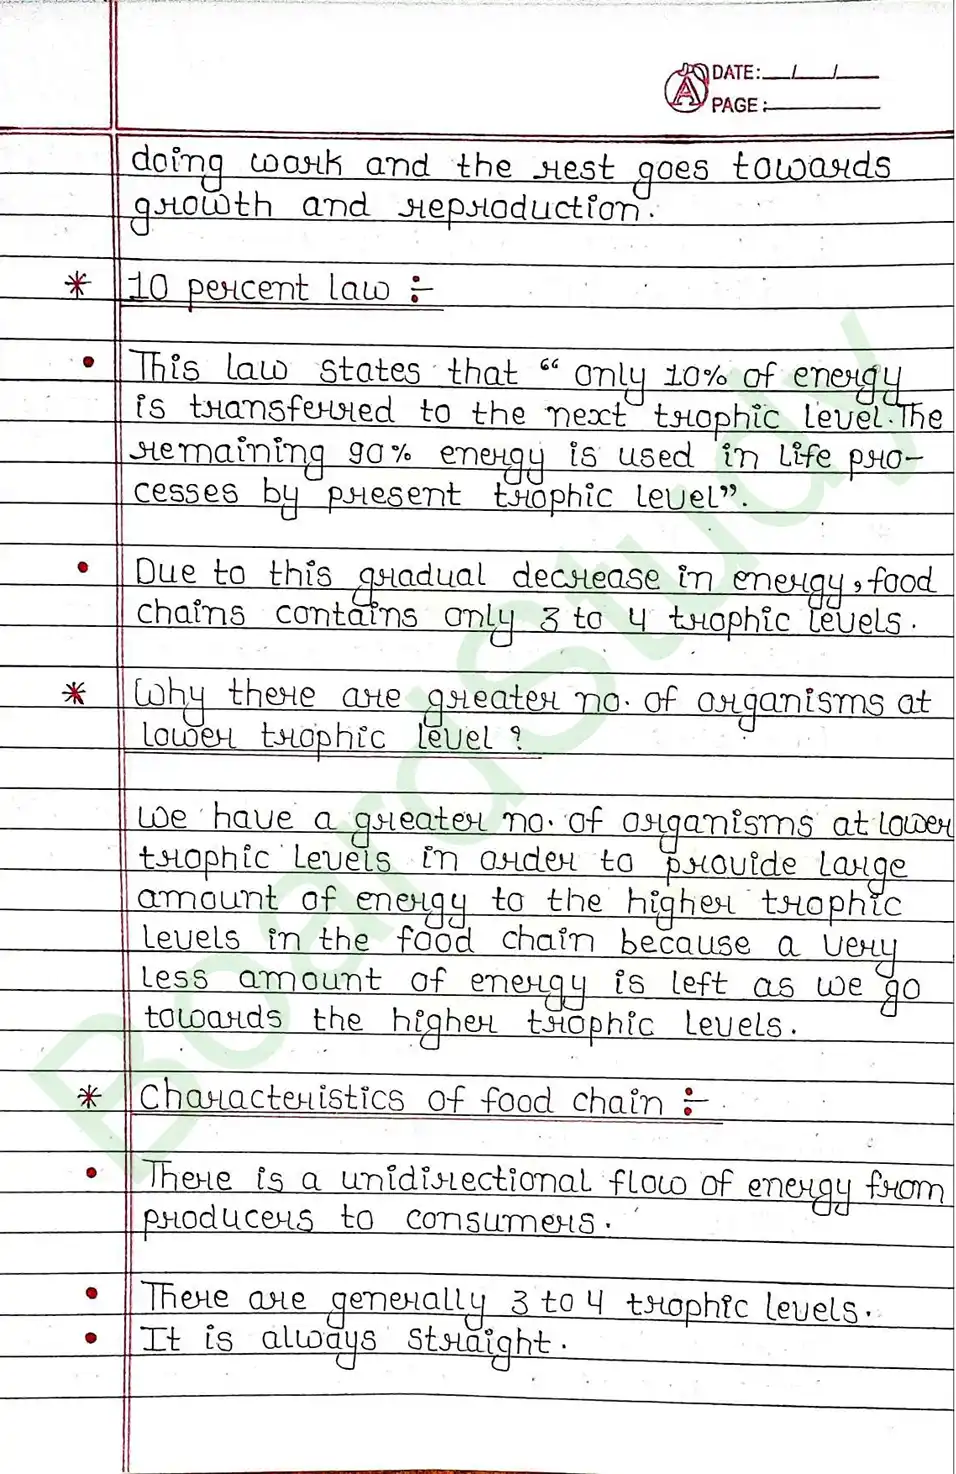 DATE: / /
PAGE:
doing work and the rest goes towards
growth and reproduction.
* 10 percent law :-
• This law states that “ only 10% of energy
is transferred to the next trophic level. The
remaining 90% energy is used in life pro-
cesses by present trophic level”.
• Due to this gradual decrease in energy, food
chains contains only 3 to 4 trophic levels.
* Why there are greater no. of organisms at
lower trophic level ?
We have a greater no. of organisms at lower
trophic levels in order to provide large
amount of energy to the higher trophic
levels in the food chain because a very
less amount of energy is left as we go
towards the higher trophic levels.
* Characteristics of food chain :-
• There is a unidirectional flow of energy from
producers to consumers.
• There are generally 3 to 4 trophic levels.
• It is always straight.
BoardStudy